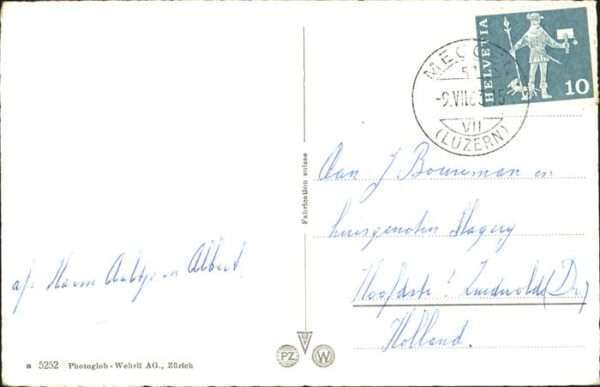 HELVETIA
10
MEGG
-9.VII.6
VII
(LUZERN)
Fabrication suisse
Aan J Bouwman en
huisgenoten
Hoofdstr! Zuidwolde (Dr.)
Holland.
afz Harm Aaltje en Albert.
PZ W
n 5252 Photoglob-Wehrli AG., Zürich